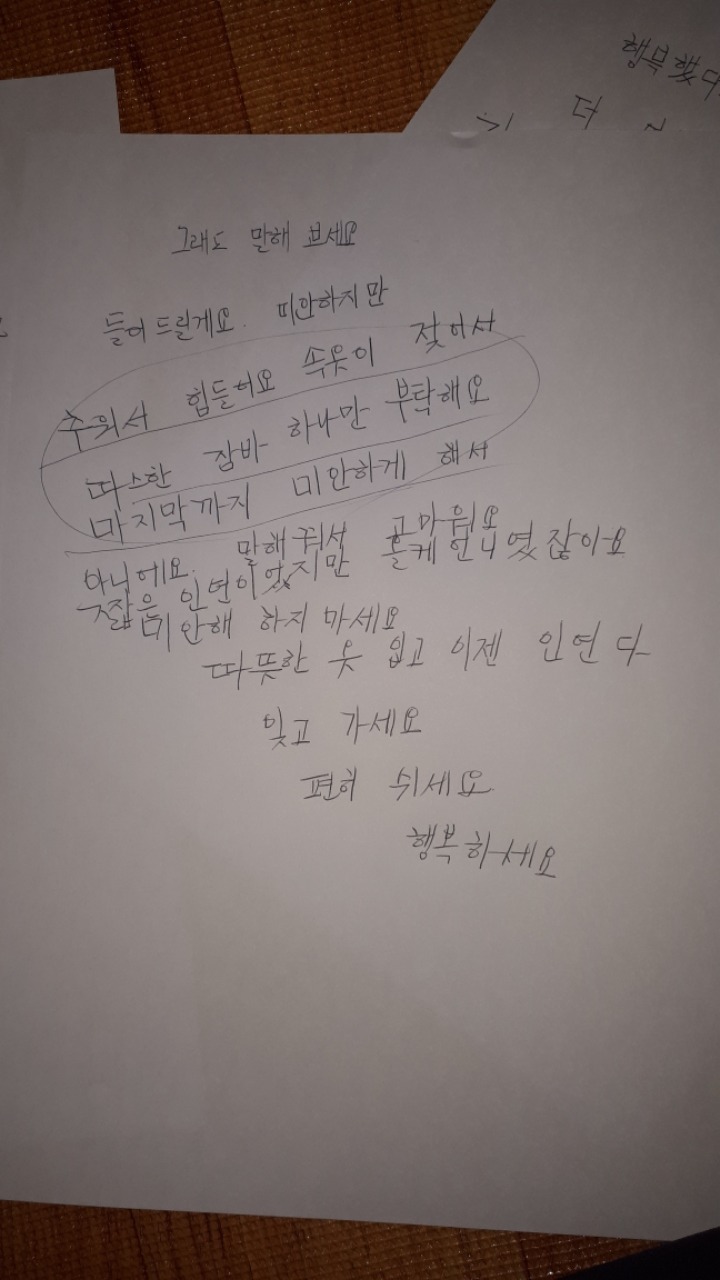 행복했다
더 ~
그래도 말해 보세요
들어 드릴게요. 미안하지만
추워서 힘들어요 속옷이 젖어서
따스한 잠바 하나만 부탁해요
마지막까지 미안하게 해서
아니에요. 말해줘서 고마워요
짧은 인연이었지만 언니였잖아요
미안해 하지 마세요
따뜻한 옷 입고 이젠 인연 다
잊고 가세요
편히 쉬세요
행복하세요